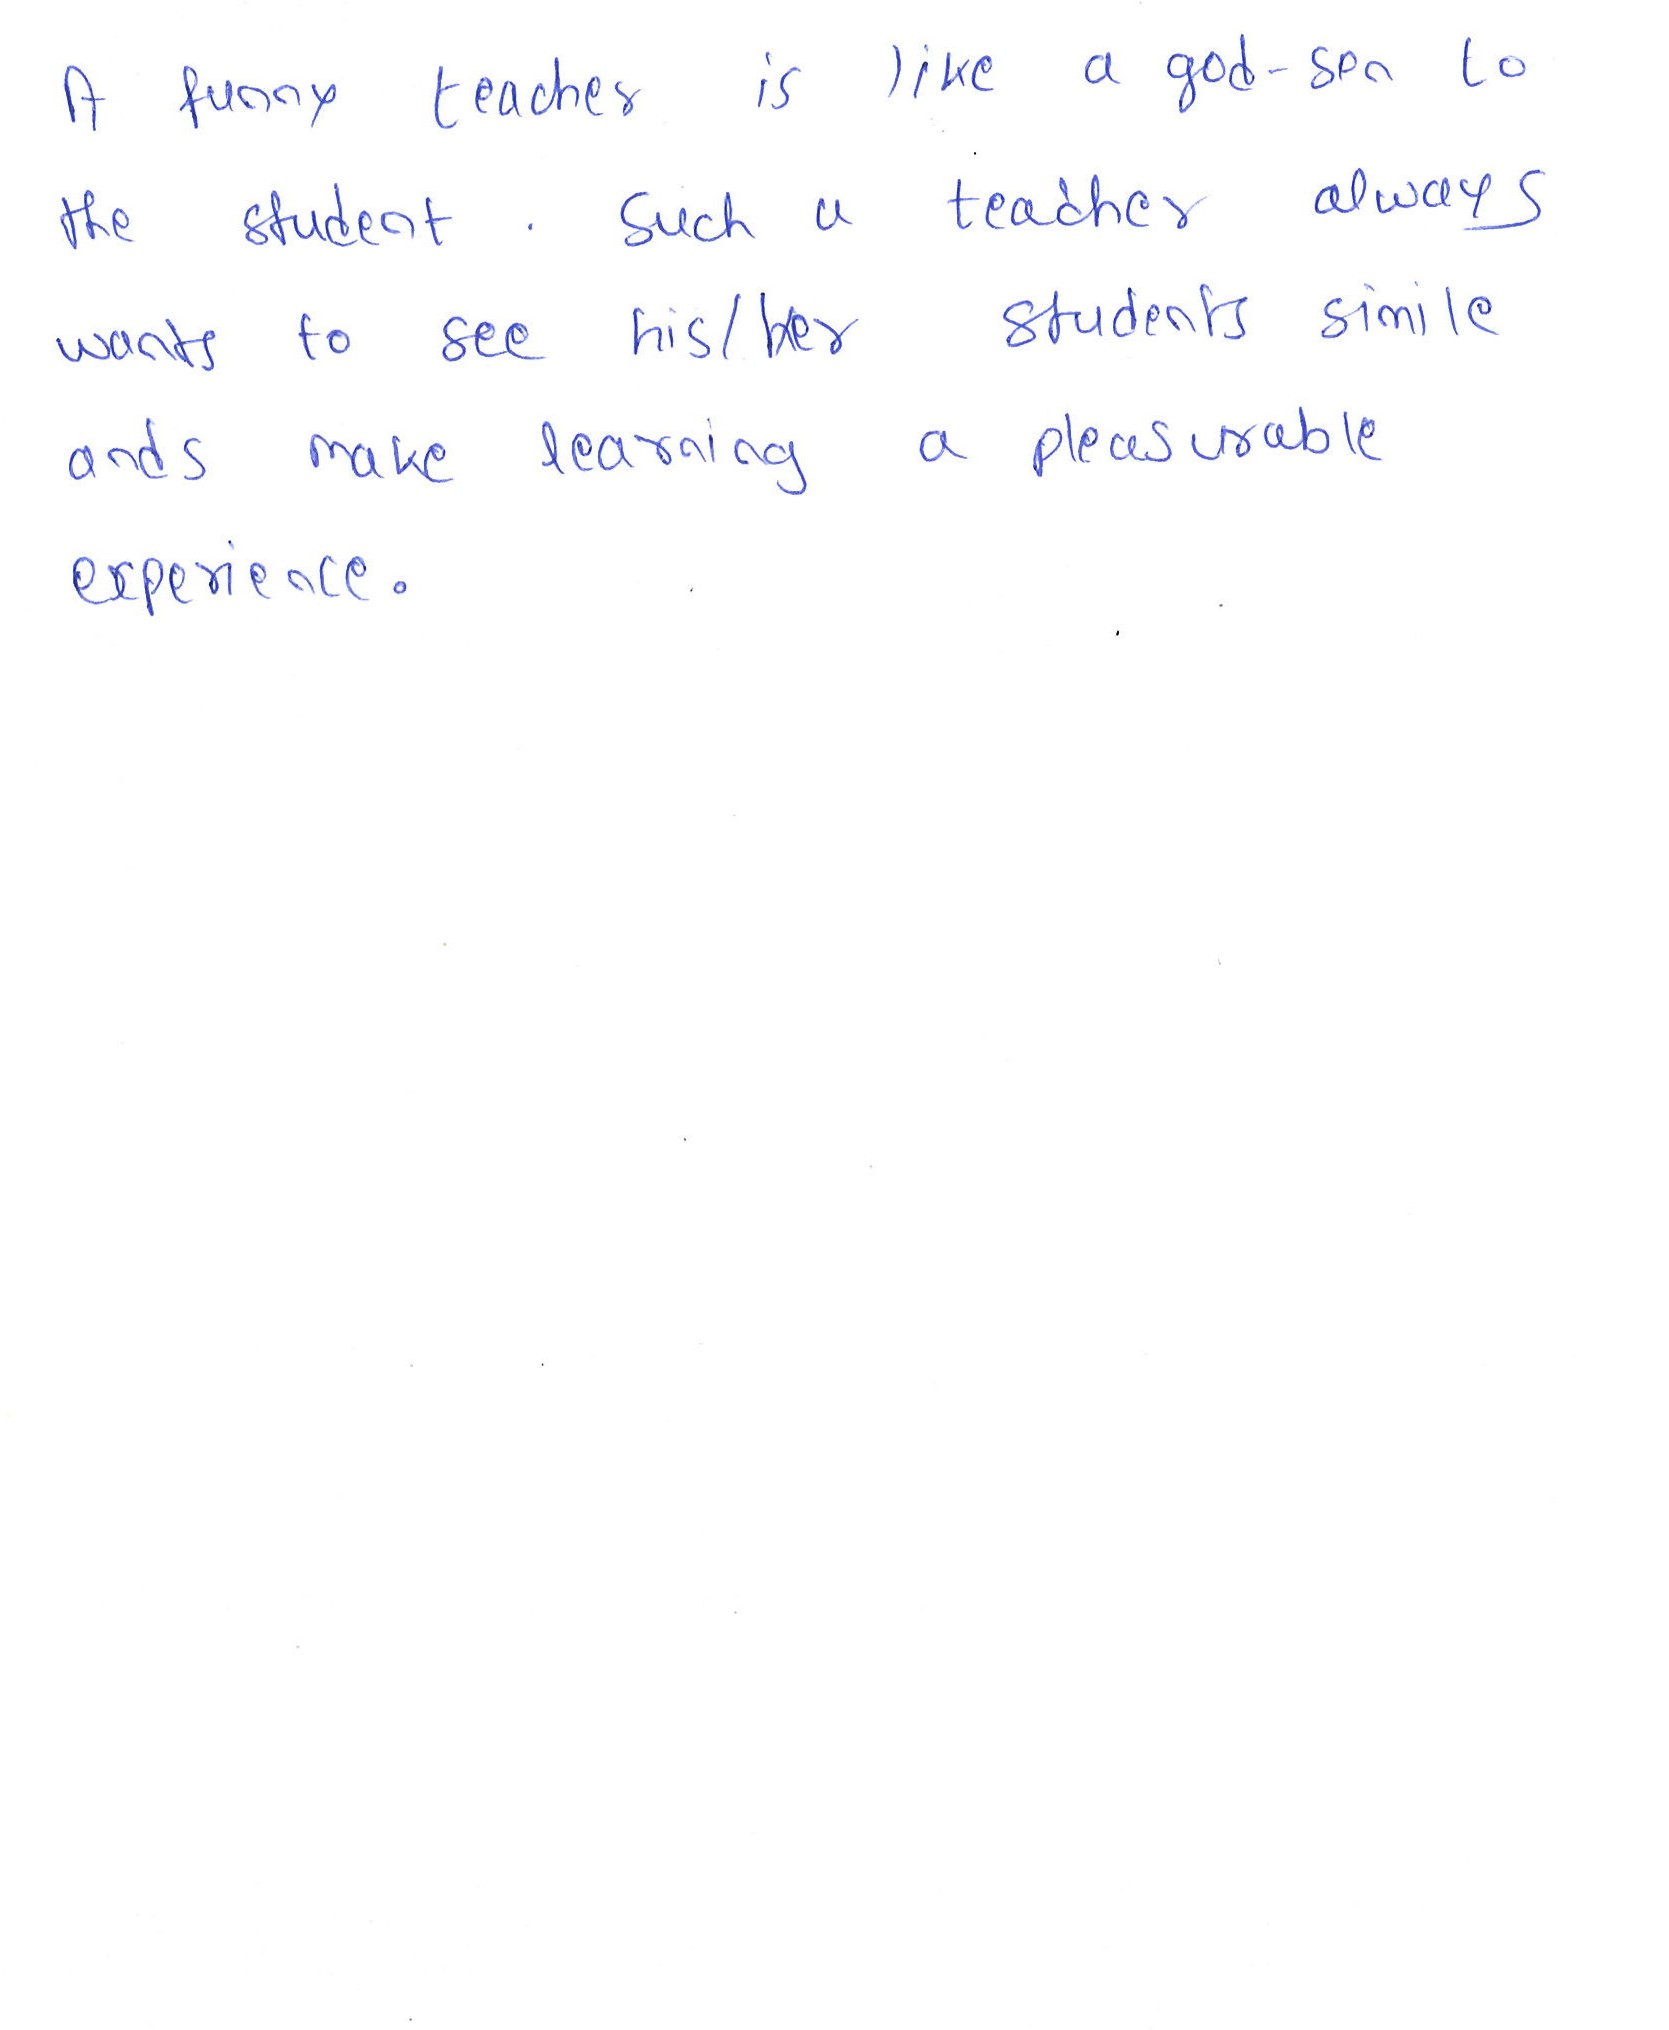 A funny teacher is like a god-son to
the student. Such a teacher always
wants to see his/her students simile
ands make learning a pleasurable
experience.